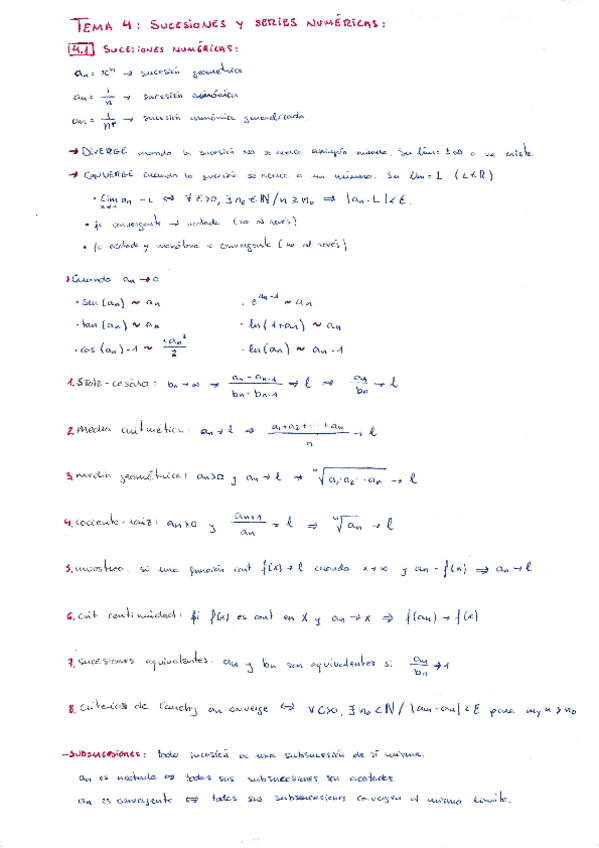 TEMA 4: SUCESIONES Y SERIES NUMÉRICAS:
4.1 SUCESIONES NUMÉRICAS:
an = x^n → sucesión geométrica
an = 1/n → sucesión armónica
an = 1/n^p → sucesión armónica generalizada
→ DIVERGE cuando la sucesión no se acerca a ningún número. Su lim = ±∞ o no existe
→ CONVERGE cuando la sucesión se acerca a un número. Su lim = L (L∈R)
· lim an = L ⇔ ∀ε>0, ∃n₀∈IN / n≥n₀ ⇒ |an-L|<ε.
· Si convergente → acotada (no al revés)
· Si acotada y monótona → convergente (no al revés)
> Cuando an → 0
· sen(an) ~ an · e^an-1 ~ an
· tan(an) ~ an · ln(1+an) ~ an
· cos(an)-1 ~ an²/2 · ln(an) ~ an-1
1. Stolz-cesáro: bn→∞ → (an-an-1)/(bn-bn-1) → l ⇒ an/bn → l
2. media aritmética: an→l ⇒ (a1+a2+...+an)/n → l
3. media geométrica: an>0 y an→l ⇒ ⁿ√(a1·a2···an) → l
4. cociente-raíz: an>0 y an+1/an → l ⇒ ⁿ√an → l
5. muestreo: si una función cont f(x)→l cuando x→∞ y an=f(n) ⇒ an→l
6. crit continuidad: Si f(x) es cont en X y an→x ⇒ f(an)→f(x)
7. sucesiones equivalentes: an y bn son equivalentes si an/bn → 1
8. criterios de Cauchy an converge ⇔ ∀ε>0, ∃n₀∈IN / |am-an|<ε para m y n ≥ n₀
- SUBSUCESIONES: toda sucesión es una subsucesión de sí misma.
an es acotada ⇔ todas sus subsucesiones son acotadas
an es convergente ⇔ todas sus subsucesiones convergen al mismo límite.